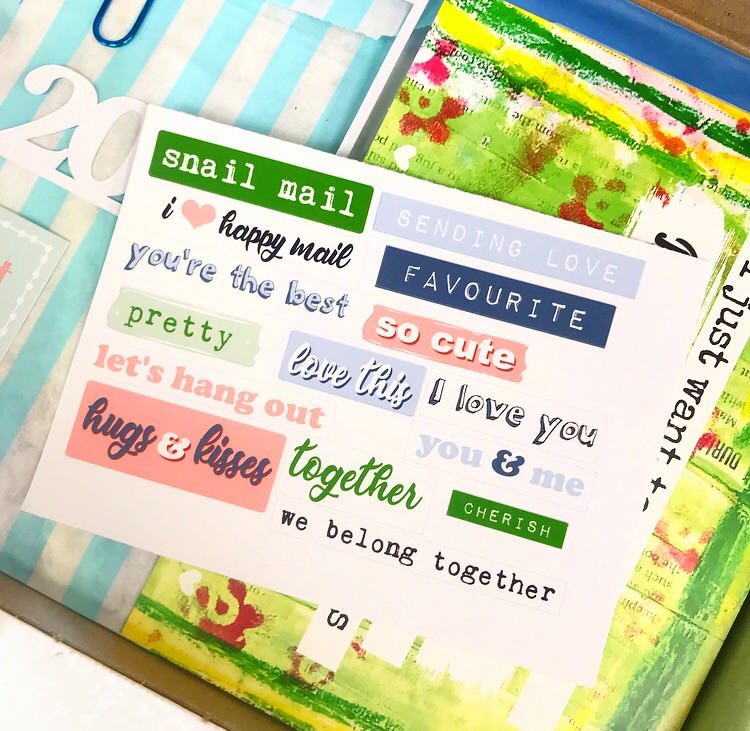 20
snail mail
i ❤ happy mail
you're the best
pretty
let's hang out
hugs & kisses
SENDING LOVE
FAVOURITE
so cute
love this
I love you
you & me
together
CHERISH
we belong together
I just want to
s